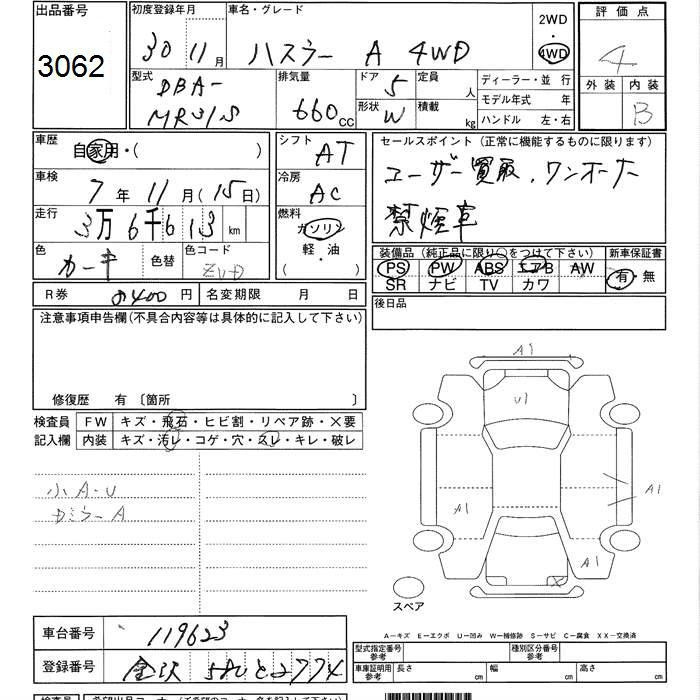 出品番号 初度登録年月日 車名・グレード 2WD・4WD 評価点
3062 30 11月 ハスラー A 4WD 4
型式 排気量 ドア 定員 ディーラー・並行 外装 内装
DBA- 5 人 モデル年式 年
MR31S 660CC 形状 W 積載 kg ハンドル 左・右 B
車歴 自家用・( ) シフト AT セールスポイント(正常に機能するものに限ります)
車検 7年11月(15日) 冷房 AC ユーザー買取、ワンオーナー
走行 3万6千613km 燃料 ガソリン 禁煙車
色 カーキ 色替 色コード ZVD 軽・油 ( )
装備品(純正品に限り○をつけて下さい) 新車保証書
PS PW ABS エアB AW 有・無
SR ナビ TV カワ
R券 8400円 名変期限 月 日 後日品
注意事項申告欄(不具合内容等は具体的に記入して下さい)
修復歴 有〔箇所 〕
検査員 FW キズ・飛石・ヒビ割・リペア跡・×要
記入欄 内装 キズ・汚レ・コゲ・穴・スレ・キレ・破レ
小A・U
ドミラーA
A1
U1
A1
A1
A1
スペア
A-キズ E-エクボ U-凹み W-補修跡 S-サビ C-腐食 XX-交換済
車台番号 119623
登録番号 金沢 581 と 2774
型式指定番号 参考 種別区分番号 参考
車庫証明用 参考 長さ cm 幅 cm 高さ cm